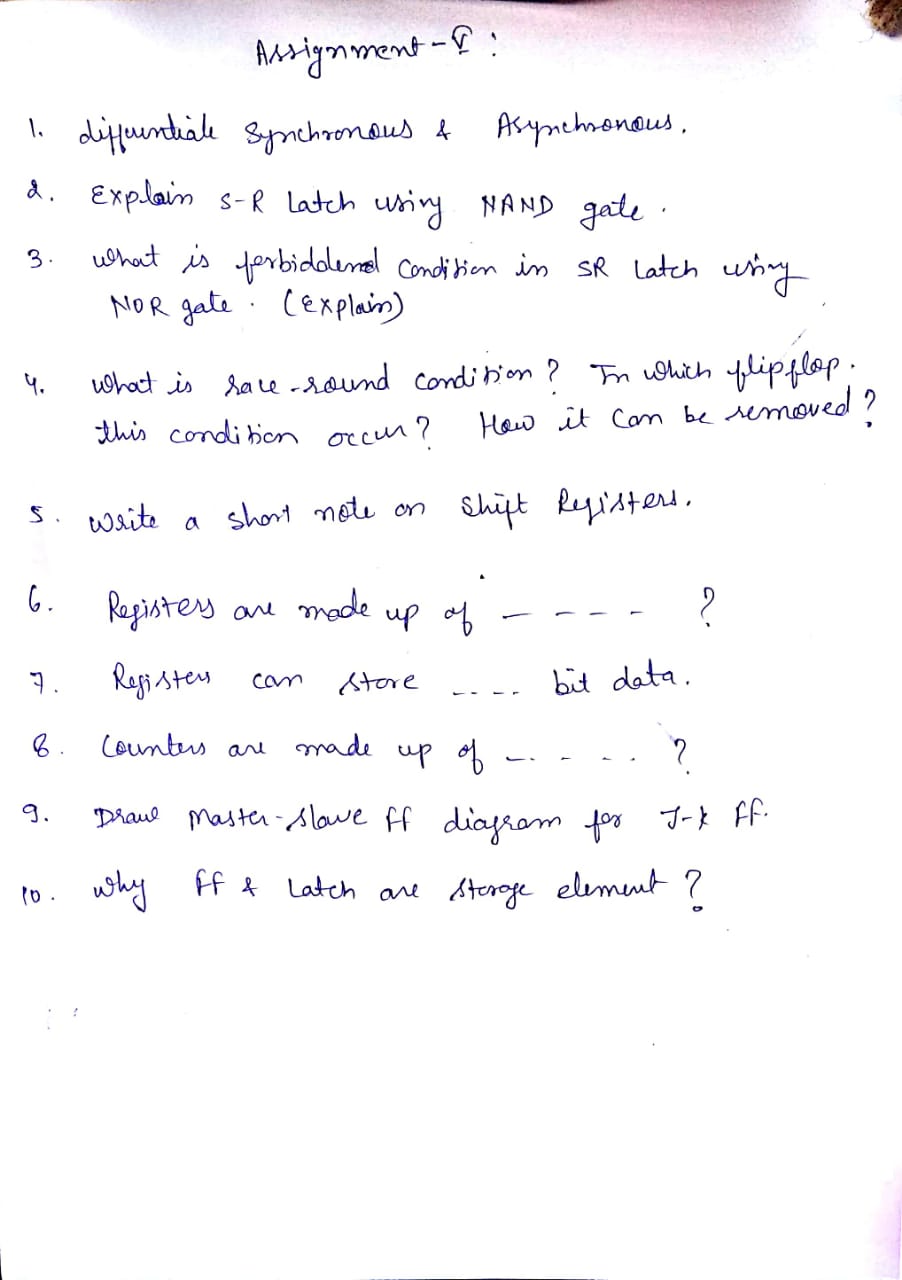 Assignment - I :
1. differentiate Synchronous & Asynchronous.
2. Explain S-R Latch using NAND gate.
3. What is forbiddened Condition in SR Latch using
NOR gate. (Explain)
4. What is race-round condition? In which flipflop.
this condition occur? How it can be removed?
5. Write a short note on Shift Registers.
6. Registers are made up of - - - - ?
7. Registers can store - - - - bit data.
8. Counters are made up of - - - - - ?
9. Draw Master-Slave ff diagram for J-K ff.
10. Why ff & Latch are storage element?